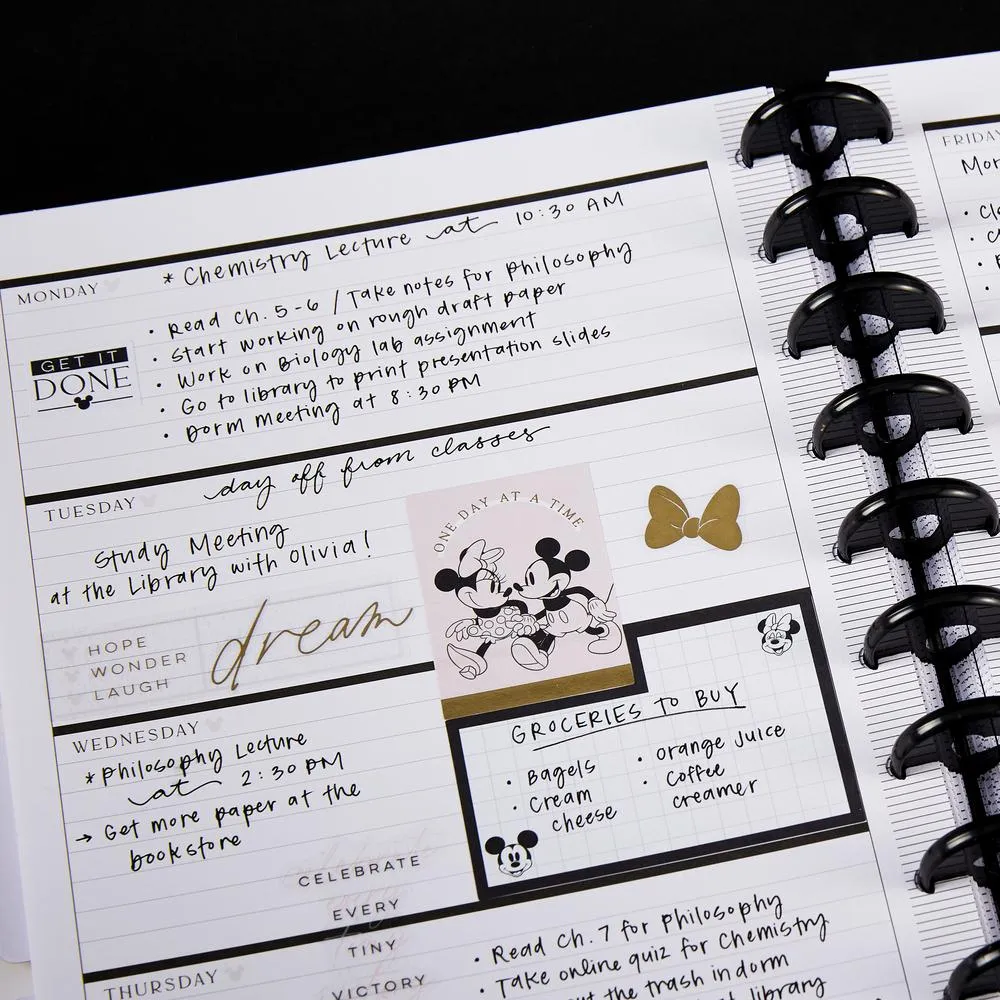 MONDAY
* Chemistry Lecture at 10:30 AM
• Read Ch. 5-6 / Take notes for Philosophy
• Start working on rough draft paper
• Work on Biology lab assignment
• Go to library to print presentation slides
• Dorm meeting at 8:30 PM
GET IT
DONE
TUESDAY
day off from classes
Study Meeting
at the Library with Olivia!
HOPE
WONDER
LAUGH
dream
ONE DAY AT A TIME
WEDNESDAY
* Philosophy Lecture
at 2:30 PM
→ Get more paper at the
bookstore
GROCERIES to BUY
• Bagels
• Cream
cheese
• Orange Juice
• Coffee
creamer
CELEBRATE
EVERY
TINY
VICTORY
THURSDAY
• Read Ch. 7 for Philosophy
• Take online quiz for Chemistry
the trash in dorm
library
FRIDAY